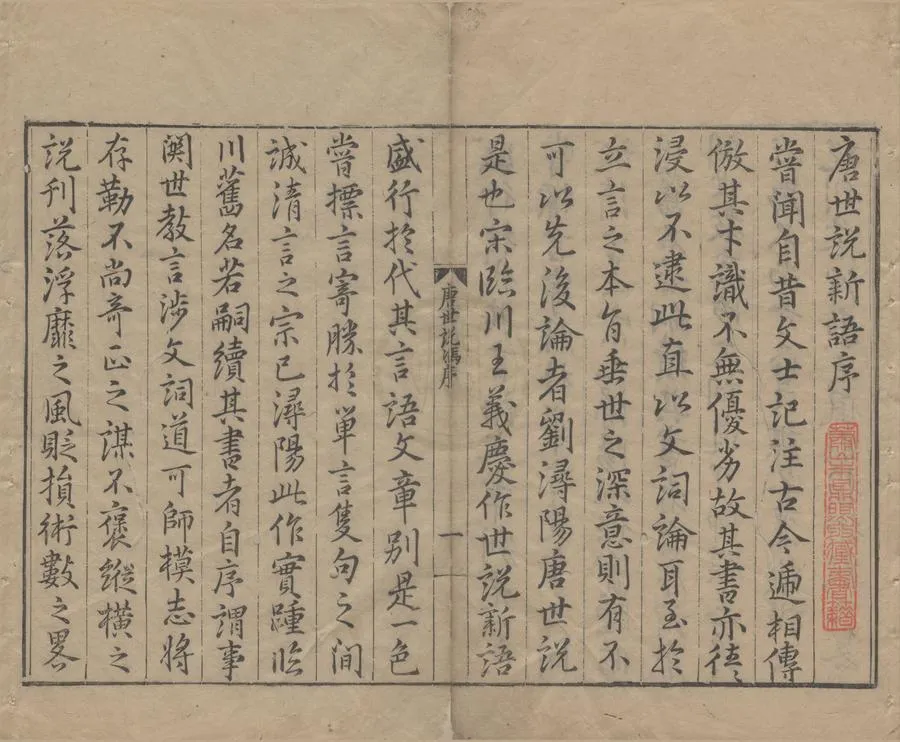 唐世說新語序
嘗聞自昔文士記注古今遞相傳
倣其才識不無優劣故其書亦徃〻
浸以不逮此直以文詞論耳至於
立言之本旨垂世之深意則有不
可以先後論者劉潯陽唐世說
是也宋臨川王義慶作世說新語
唐世說馮序
一
盛行於代其言語文章別是一色
嘗摽言寄勝於單言隻句之間
誠清言之宗已潯陽此作實踵臨
川舊名若嗣續其書者自序謂事
関世教言涉文詞道可師模志將
存勸不尚奇正之謀不褒縱橫之
說刊落浮靡之風貶損術數之畧